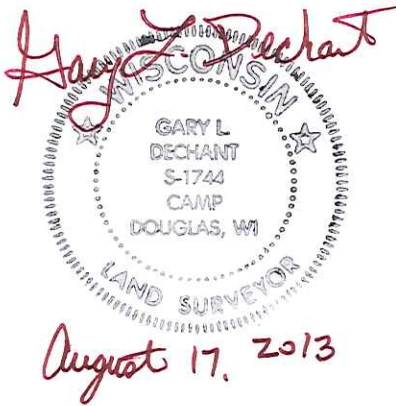 Gary L Dechant
WISCONSIN
GARY L.
DECHANT
S-1744
CAMP
DOUGLAS, WI
LAND SURVEYOR
August 17, 2013